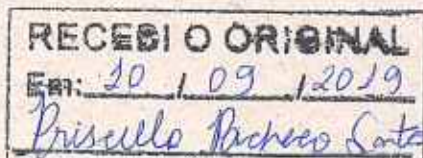 RECEBI O ORIGINAL
Em: 20 / 09 / 2019
Priscilla Pacheco Santo